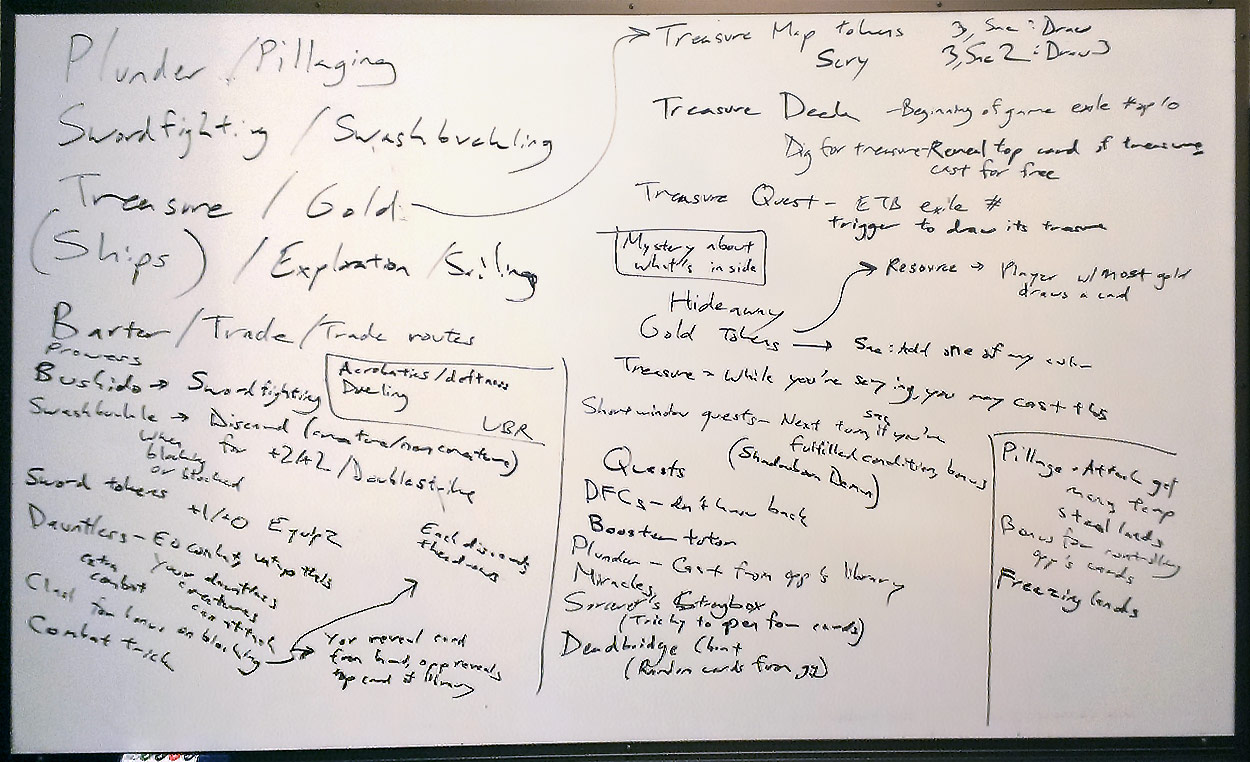 Plunder / Pillaging
Swordfighting / Swashbuckling
Treasure / Gold
(Ships) / Exploration / Sailing
Barter / Trade / Trade routes
Prowess
Bushido → Swordfighting
Acrobatics / deftness
Dueling
UBR
Swashbuckle → Discard (creature/noncreature)
for +2/+2 / Doublestrike
when
blocking
or attacked
Sword tokens
+1/+0 Equip 2
Each discards
then draws
Dauntless - EO combat, untap this
Your dauntless
creatures
can attack
extra
combat
Clash for bonus on blocking
You reveal card
from hand, opp reveals
top card of library
Combat trick
Treasure Map tokens 3, Sac: Draw
Scry 3, Sac 2: Draw 3
Treasure Deck - Beginning of game exile top 10
Dig for treasure - Reveal top card if treasure
cast for free
Treasure Quest - ETB exile #
trigger to draw its treasure
Mystery about
what's inside
Resource → Player w/ most gold
draws a card
Hideaway
Gold Tokens → Sac: Add one of any color
Treasure - While you're scrying, you may cast this
Short window quests - Next turn, if you've
fulfilled condition, bonus
sac
(Shadowborn Demon)
Quests
DFCs - don't know back
Booster tutor
Plunder - Cast from opp's library
Miracles
Sorcerer's Strongbox
(Tricky to open for cards)
Deadbridge Chant
(Random cards from gy)
Pillage - Attack get
many temp
steal lands
Bonus for controlling
opp's cards
Freezing lands